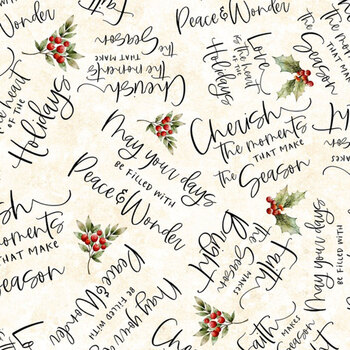 Peace & Wonder
Faith
Cherish
the moments
THAT MAKE
the Season
Love
IS THE
heart
OF THE
Holidays
the
Season
the heart
OF THE
Holidays
May your days
BE FILLED WITH
Peace & Wonder
Cherish
the moments
THAT MAKE
the Season
Cherish
the moments
THAT MAKE
the Season
Faith
MAKES
the Season
Bright
May your days
BE FILLED WITH
Peace & Wonder
May your days
BE FILLED WITH
Peace & Wonder
Faith
MAKES